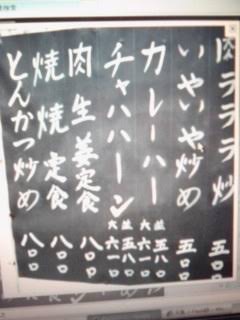 肉テテテ炒 五〇〇
いやいや炒め 五〇〇
カレーハー 並五八〇 大六一〇
チャハハーン 並五八〇 大六一〇
肉生姜定食 八〇〇
焼焼定食 八〇〇
とんかつ炒め 八〇〇